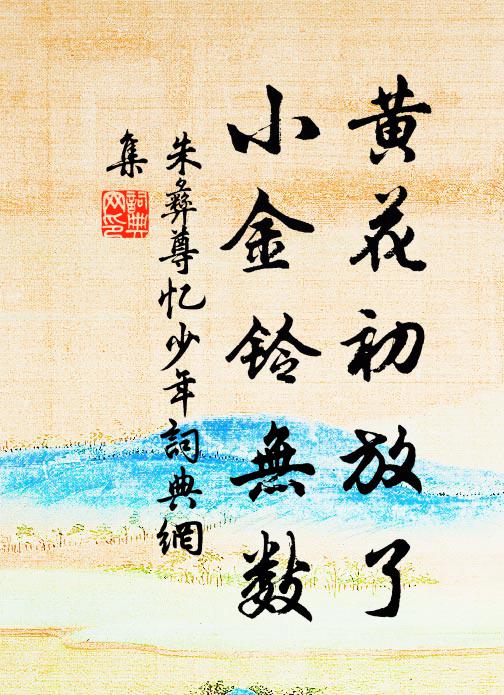 黄花初放了
小金鈴無數
朱彝尊忆少年詞典網
集
詞典
网印